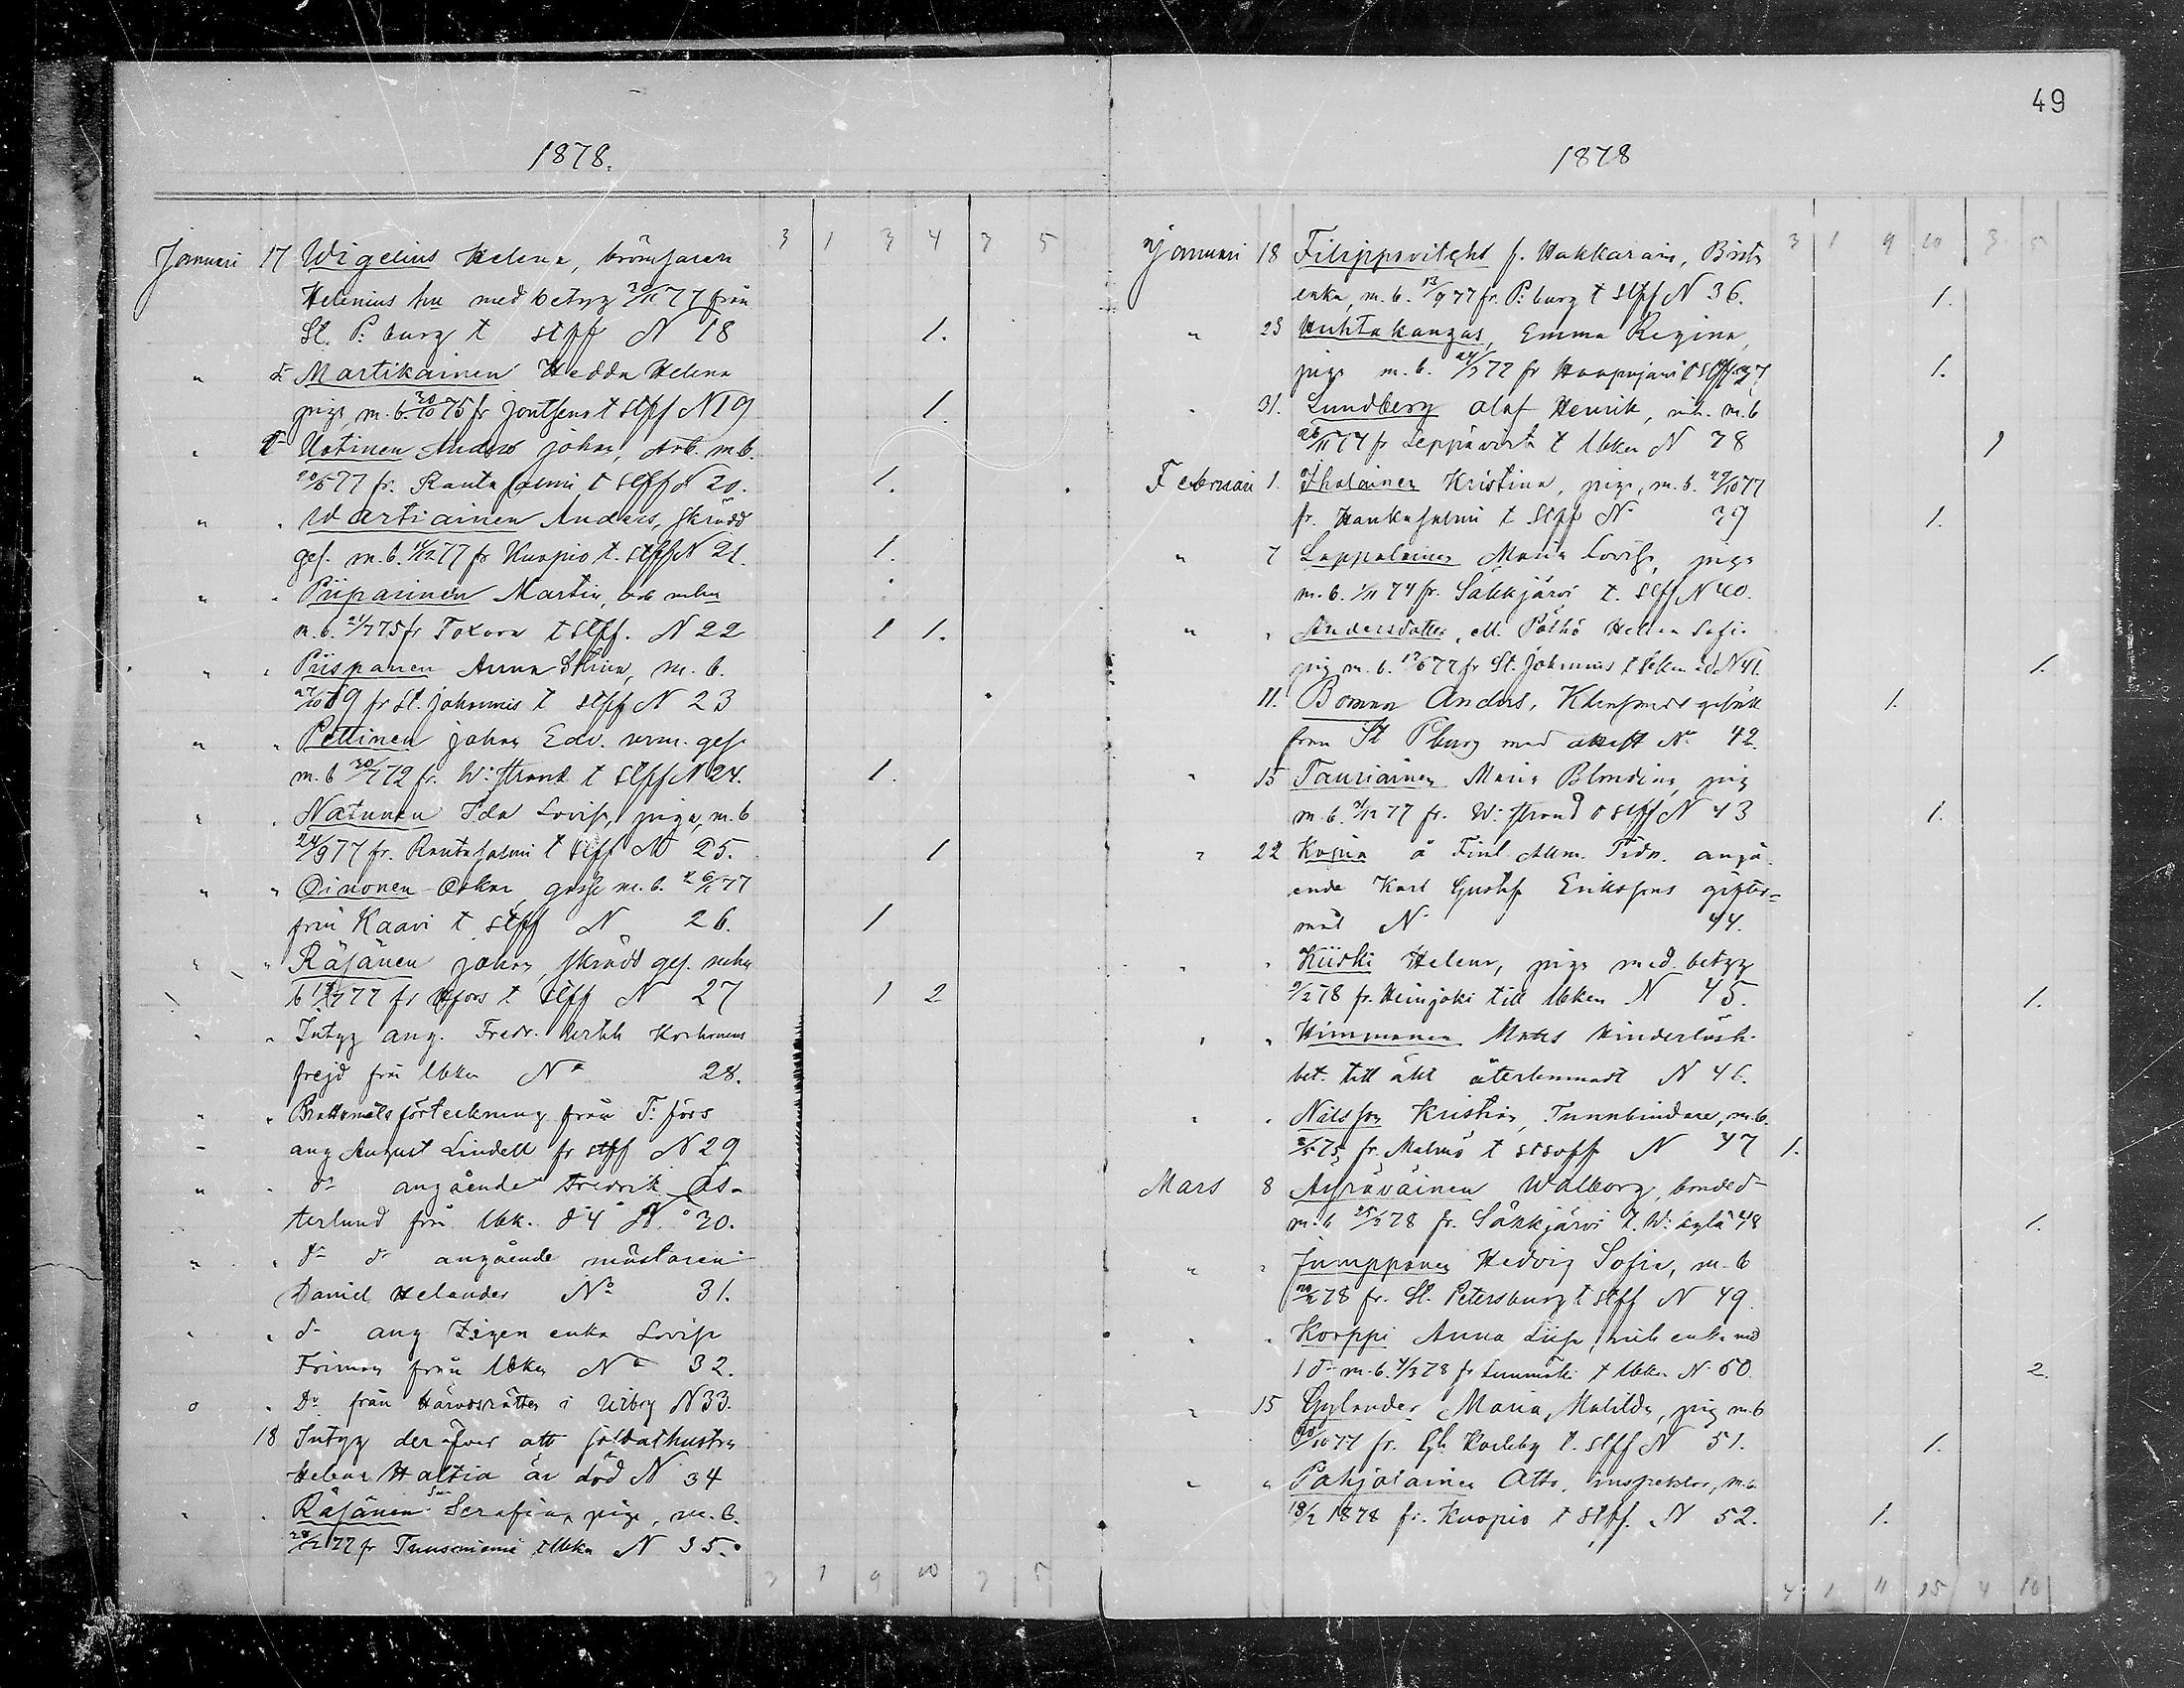 49
1878.
3 1 3 4 3 5
Januari 17 Wigelius Helena, bromsaren
Helenius hu med betyg 20/11 77 från
St. P:burg t stff N 18 1.
" d:o Martikainen Hedda Helena
piga, m.b. 30/10 75 fr Jontsena t stff N 19 1.
" d:o Uotinen Anders Johan, Arb. m.b.
20/6 77 fr. Rantasalmi t stff N 20. 1.
" " Wartiainen Anders, skrädd
ges. m.b. 4/12 77 fr Kuopio t. stff N 21. 1.
" " Piiparinen Martin, arb mhu
m.b. 21/7 75 fr Toxova t stff. N 22 1 1.
" " Piispanen Anna Stina, m. b.
27/10 69 fr St. Johannis t stff N 23
" " Pettinen Johan Edv. urm. ges.
m.b 30/7 72 fr. W:strand t stff N 24. 1.
" " Natunen Ida Lovisa, piga, m.b
24/9 77 fr. Rantasalmi t stff N 25. 1
" " Oinonen Oskar, gosse m.b. 26/1 77
från Kaavi t stff N 26. 1
" " Räsänen Johan, skrädd ges. mhu
b 17/7 77 fr Hfors t stff N 27 1 2
" " Intyg ang. Fredr. Korhonens
frejd från lbkn N:o 28.
" " Brottmålsförteckning från T:fors
" ang August Lindell fr stff N 29
" " d:o angående Fredrik Ös-
terlund från lbk. N:o 30.
" " d:o d:o angående
Daniel Helander N:o 31.
" " d:o ang Zigen enka Lovisa
Friman från lbkn N:o 32.
" " D:o från Häradsrätten i Wiborg N 33.
18 Intyg deröfver att soldathustru
Helena Haltia är död N 34
" " Räsänen Serafina, piga, m.b.
28/12 77 fr Tuusniemi t lbkn N 35.
3 1 9 10 3 5
1878
3 1 9 10 3 5
Januari 18 Filippovitsht f. Hakkarain, Brita
enka, m.b. 13/9 77 fr. P:burg t stff N 36. 1.
" 23 Huhtakangas, Emma Regina,
piga m.b. 24/7 72 fr Haapajärvi t stff 37 1.
" 31. Lundberg Olof Henrik, m.b
26/11 74 fr Leppävirta t lbkn N 38 1
Februari 1. Ihalainen Kristina, piga, m.b. 29/10 77
fr. Hankasalmi t stff N:o 39 1.
" 7 Lappalainen Maria Lovisa, piga
m.b. 1/11 74 fr. Säkkjärvi t. stff N 40.
" " Andersdotter, M. Pöshö Helena Sofia
pig m.b. 17/6 77 fr St. Johannis t N 41. 1.
11. Boman Anders, Klensmeds gesäll 1.
från St Pburg med attest N:o 42.
" 15 Tauriainen Maria Blondina, pig
m.b. 31/12 77 fr. W:strand t stff N 43 1.
" 22 Kopia å Finl. Allm. Tidn. angå-
ende Karl Gustaf Erikssons gifter-
mål N:o 44.
" " Kiiski Helena, piga med betyg
9/2 78 fr. Heinjoki till lbkn N 45. 1.
" " Himmanen Matts hinderlösh.
bet. till äkt återlemnadt N 46.
" " Nilsson Kristian, Tunnbindare, m.b.
2/5 75 fr. Malmö t stsoff N 47 1.
Mars 8 Äyräväinen Walborg, bonded:r
m.b 25/2 78 fr. Säkkjärvi t. W:kylä 48 1.
" " Jumppanen Hedvig Sofia, m.b
20/2 78 fr. St. Petersburg t stff N 49.
" " Korppi Anna Liisa, enka med
1 d:r m.b. 4/3 78 fr Lumivaara t lbkn N:o 50. 2.
" 15 Gylander Maria Matilda, pig m.b
20/10 77 fr. Gl. Karleby t. stff N 51. 1.
" " Pohjolainen Otto, inspektor, m.b.
18/2 1878 fr. Kuopio t stff. N 52. 1.
4 1 11 15 4 10